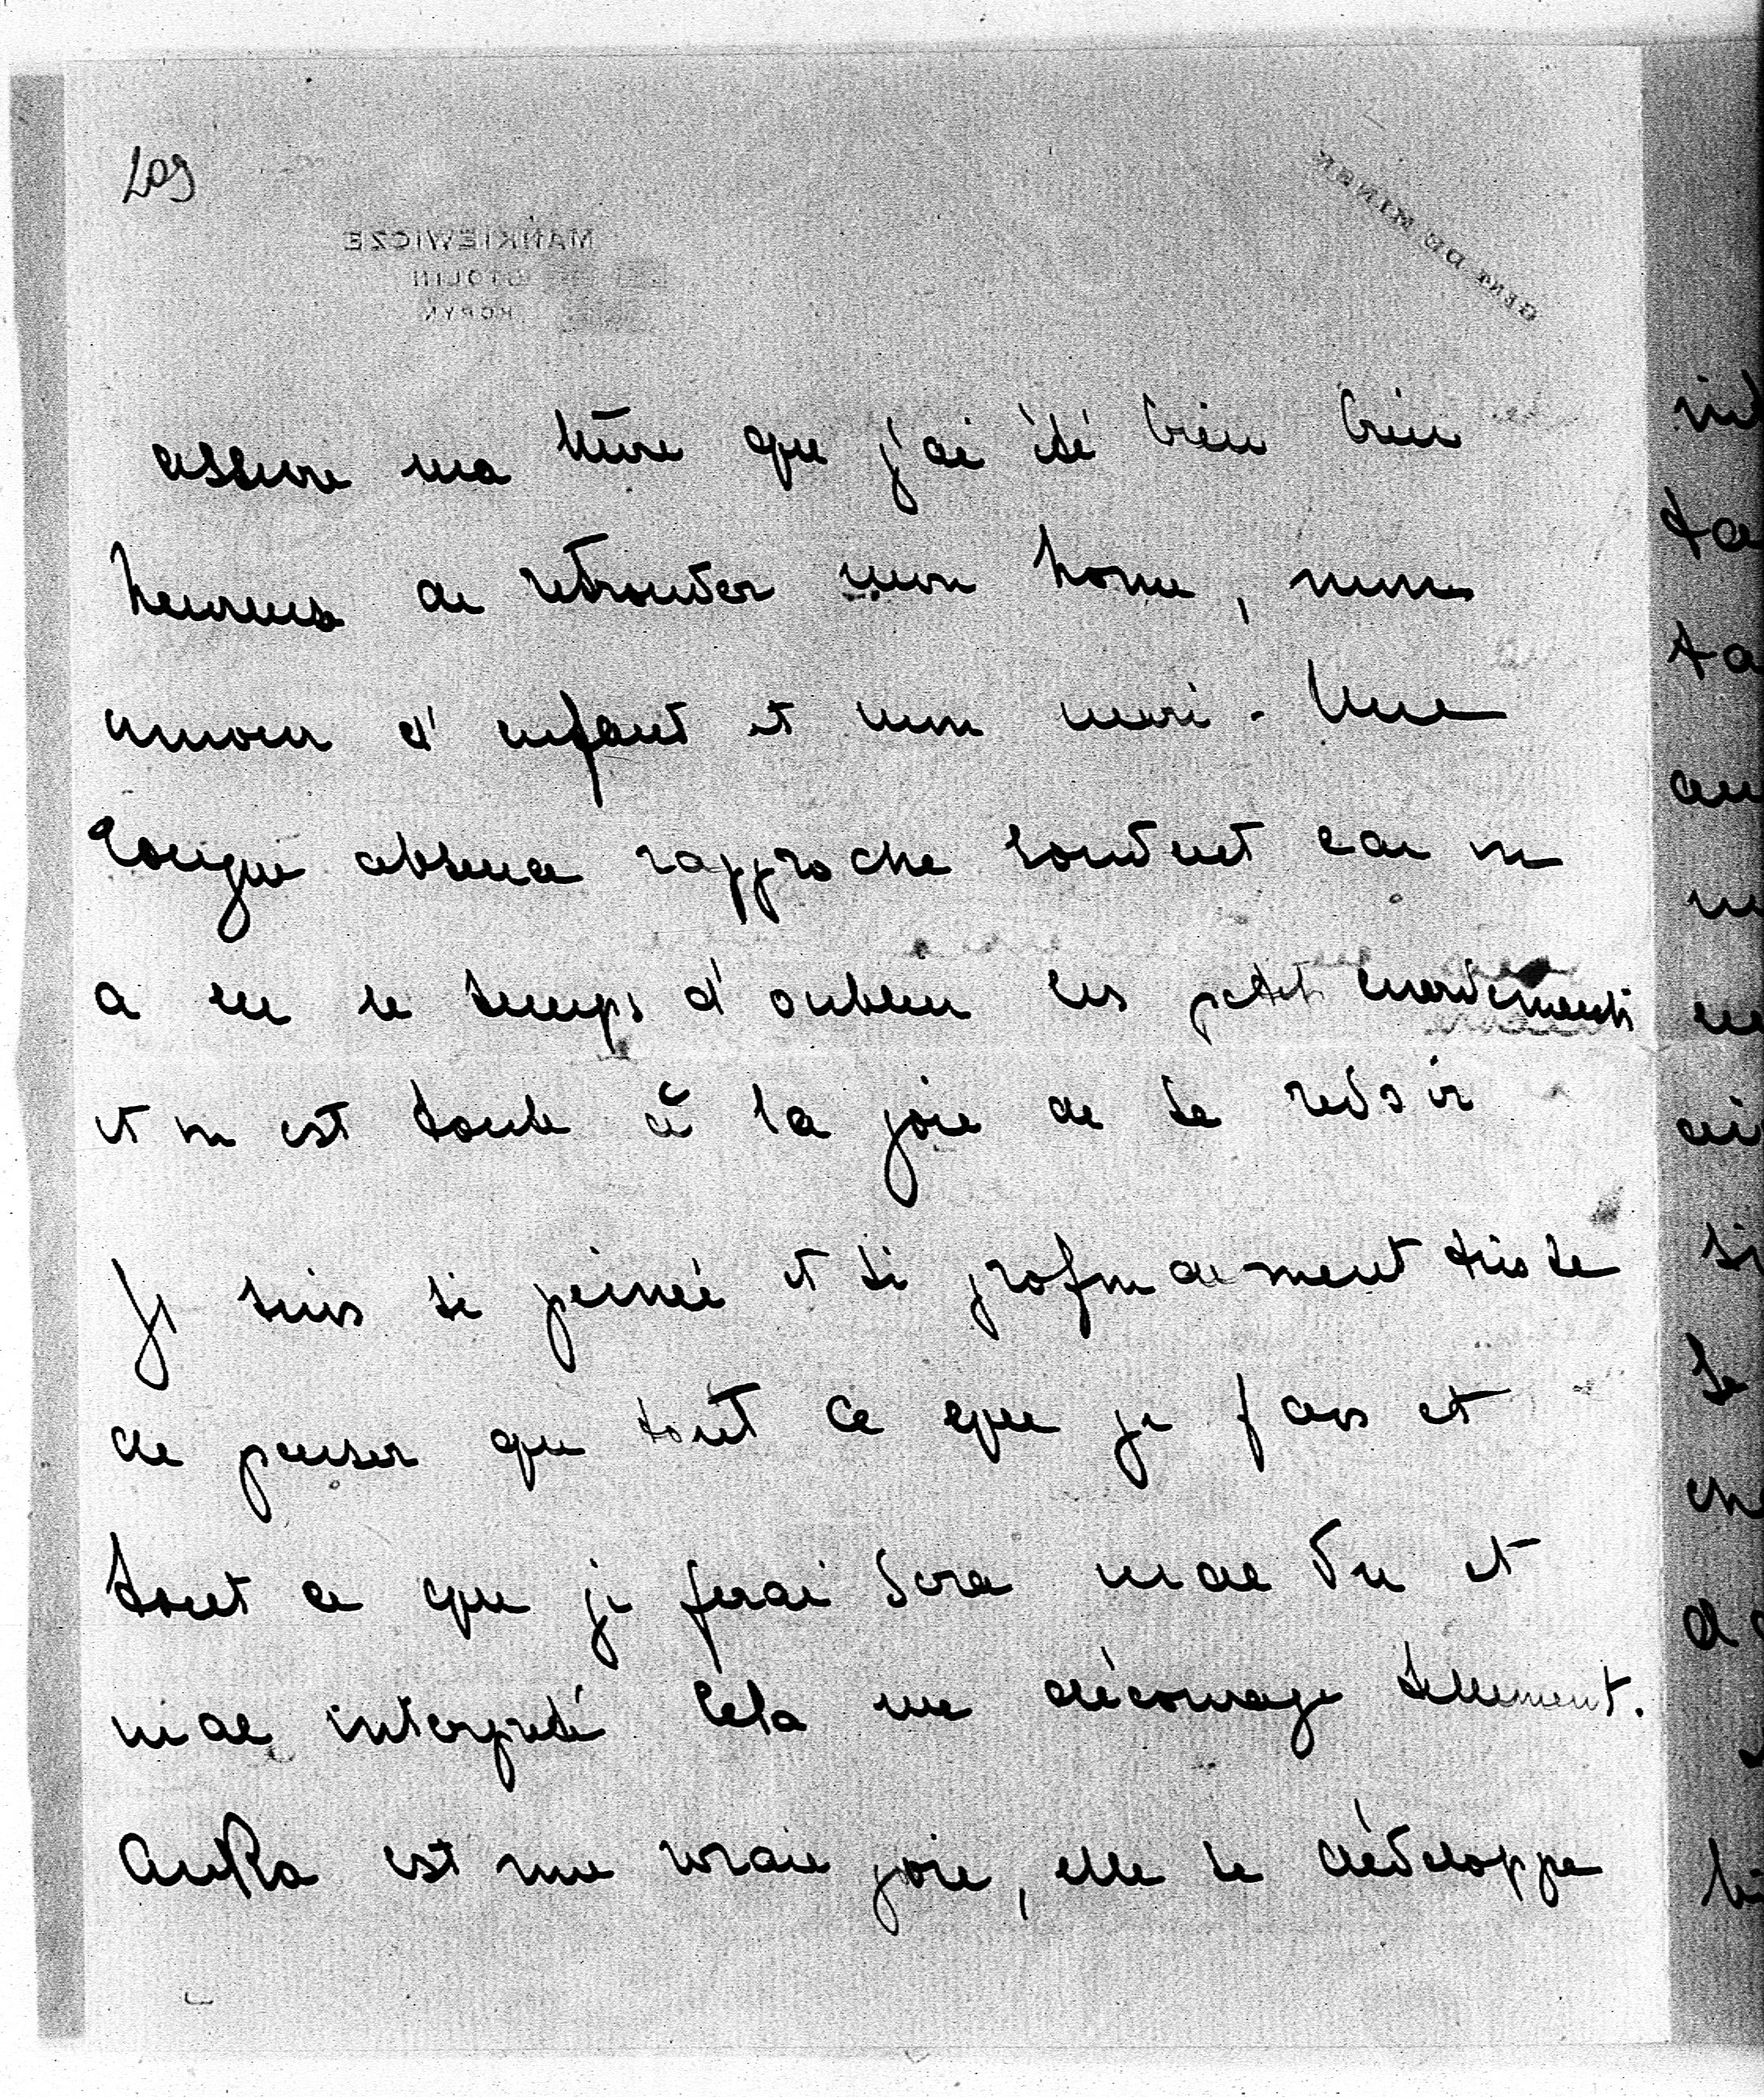 209
assure ma chère que j'ai été bien bien
heureuse de retrouver mon home, mon
amour d'enfant et mon mari. Une
longue absence rapproche souvent car on
a eu le temps d'oublier les petits
et on est toute à la joie de se revoir
Je suis si peinée et si profondement triste
de penser que tout ce que je fais et
tout ce que je ferai sera mal vu et
mal interpreté Cela me décourage tellement.
Anka est une vraie joie, elle se développe
MANKIEWICZE
STOLIN
HORYŃ